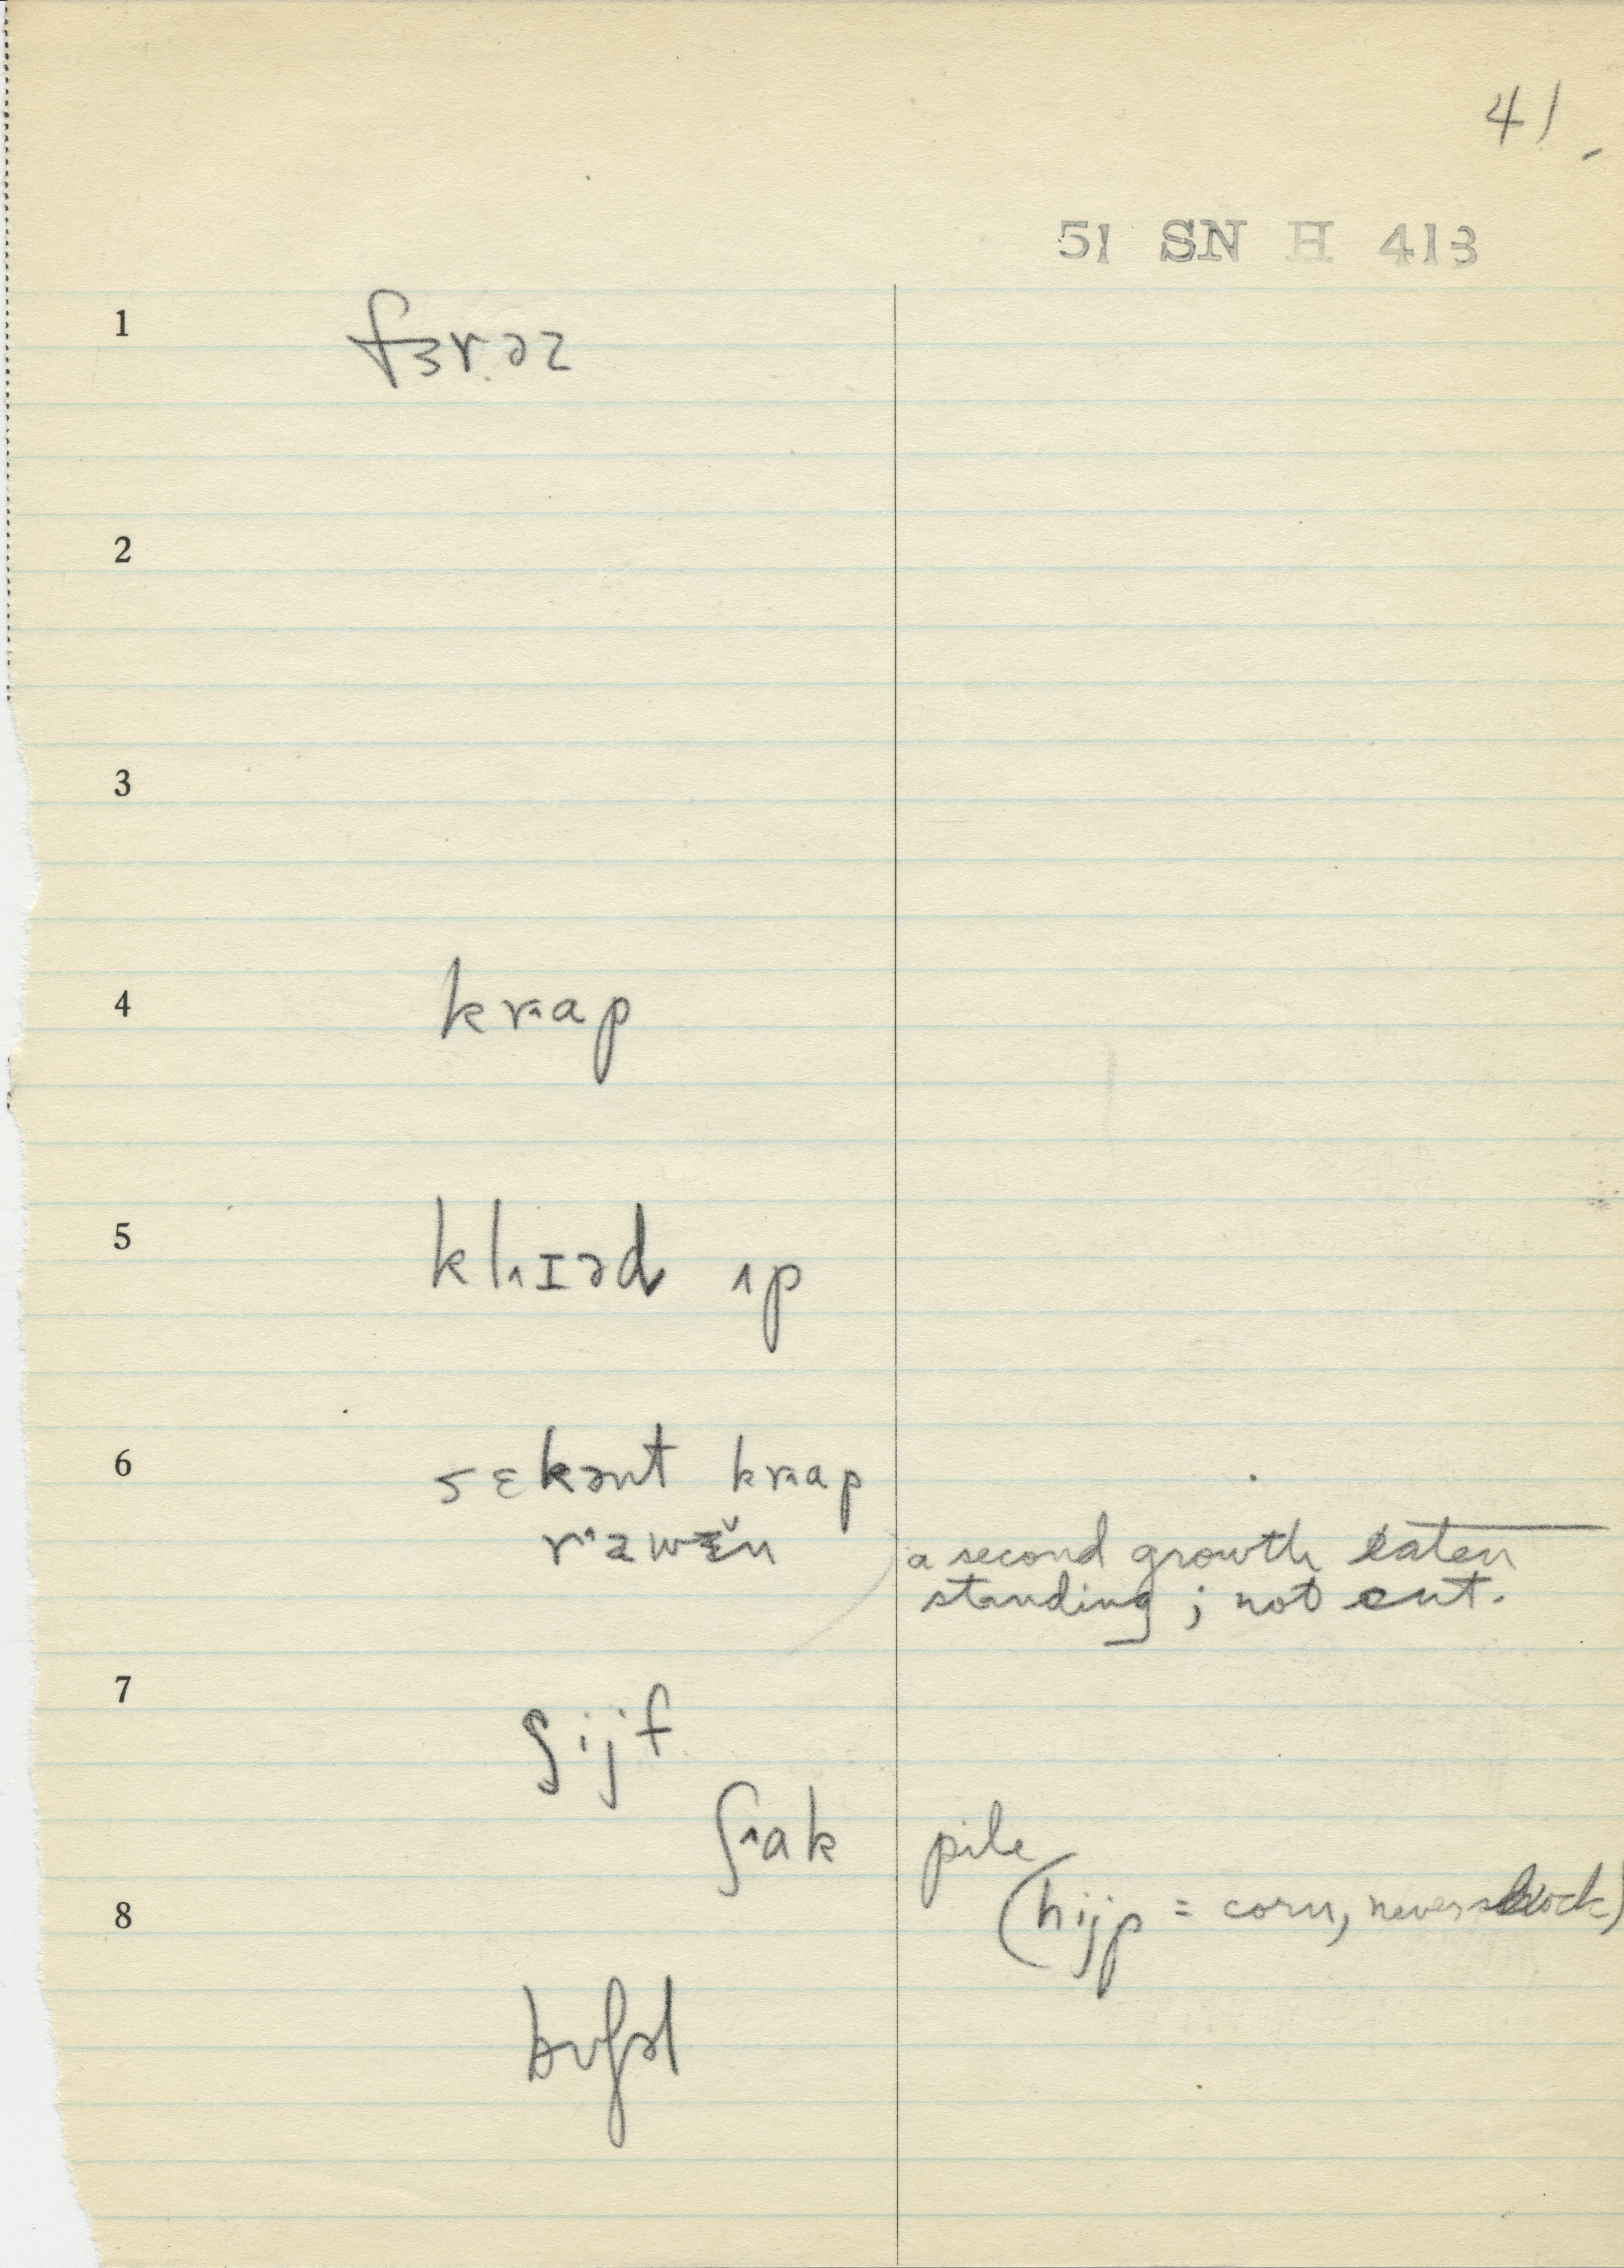 41.
51 SN H 413
1 fɜrəz
2
3
4 krʌap
5 klʌɪəd ʌp
6 sɛkənt krʌap
rʌawɛ̌n a second growth eaten
standing; not cut.
7 ʃijf
ʃʌak pile
8 (hijp = corn, never shock)
bʊʃəl